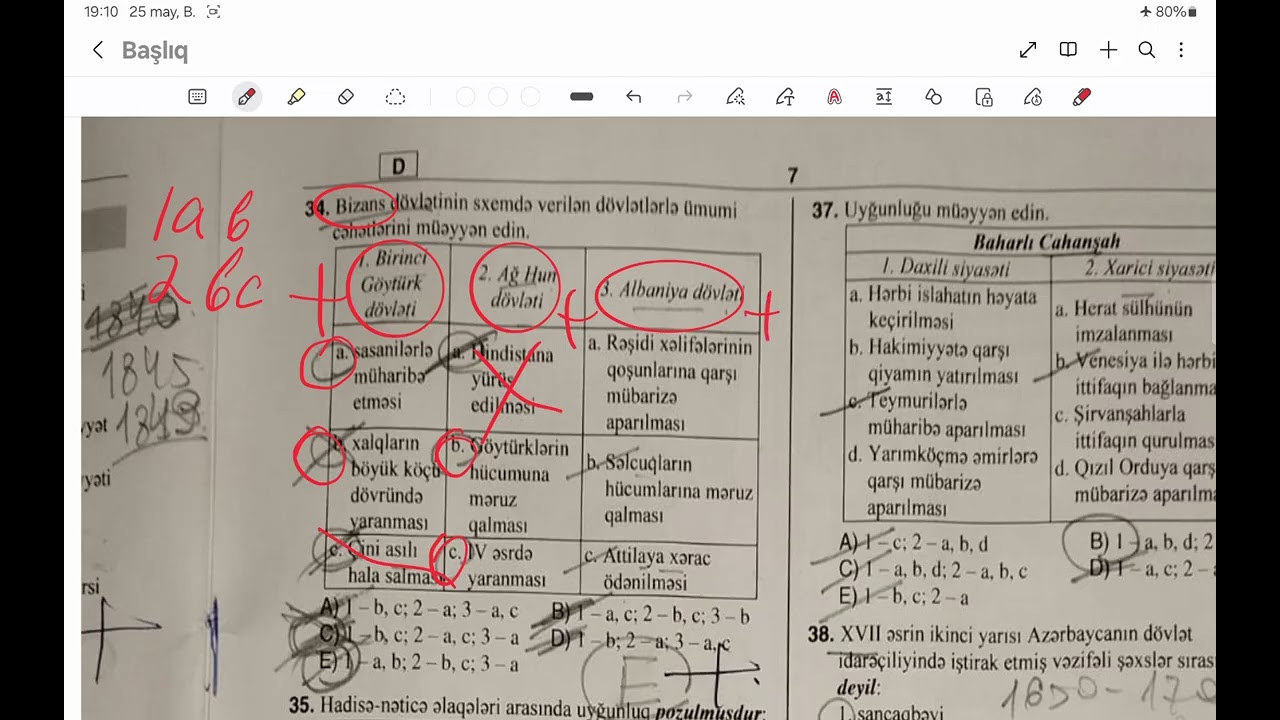 19:10 25 may, B.
80%
Başlıq
D
7
34. Bizans dövlətinin sxemdə verilən dövlətlərlə ümumi
cəhətlərini müəyyən edin.
1. Birinci
Göytürk
dövləti
2. Ağ Hun
dövləti
3. Albaniya dövləti
a. sasanilərlə
müharibə
etməsi
a. Hindistana
yürüş
edilməsi
a. Rəşidi xəlifələrinin
qoşunlarına qarşı
mübarizə
aparılması
b. xalqların
böyük köçü
dövründə
yaranması
b. Göytürklərin
hücumuna
məruz
qalması
b. Səlcuqların
hücumlarına məruz
qalması
c. Çini asılı
hala salması
c. IV əsrdə
yaranması
c. Attilaya xərac
ödənilməsi
A) 1 – b, c; 2 – a; 3 – a, c
B) 1 – a, c; 2 – b, c; 3 – b
C) 1 – b, c; 2 – a, c; 3 – a
D) 1 – b; 2 – a; 3 – a, c
E) 1 – a, b; 2 – b, c; 3 – a
E
35. Hadisə-nəticə əlaqələri arasında uyğunluq pozulmuşdur:
1a b
2 bc
1840
1845
1849
yyət
yyəti
rsi
37. Uyğunluğu müəyyən edin.
Baharlı Cahanşah
1. Daxili siyasəti
2. Xarici siyasəti
a. Hərbi islahatın həyata
keçirilməsi
b. Hakimiyyətə qarşı
qiyamın yatırılması
c. Teymurilərlə
müharibə aparılması
d. Yarımköçmə əmirlərə
qarşı mübarizə
aparılması
a. Herat sülhünün
imzalanması
b. Venesiya ilə hərbi
ittifaqın bağlanma
c. Şirvanşahlarla
ittifaqın qurulmas
d. Qızıl Orduya qarş
mübarizə aparılma
A) 1 – c; 2 – a, b, d
B) 1 – a, b, d; 2
C) 1 – a, b, d; 2 – a, b, c
D) 1 – a, c; 2 –
E) 1 – b, c; 2 – a
38. XVII əsrin ikinci yarısı Azərbaycanın dövlət
idarəçiliyində iştirak etmiş vəzifəli şəxslər sıras
deyil:
1650-170
1. sancaqbəyi